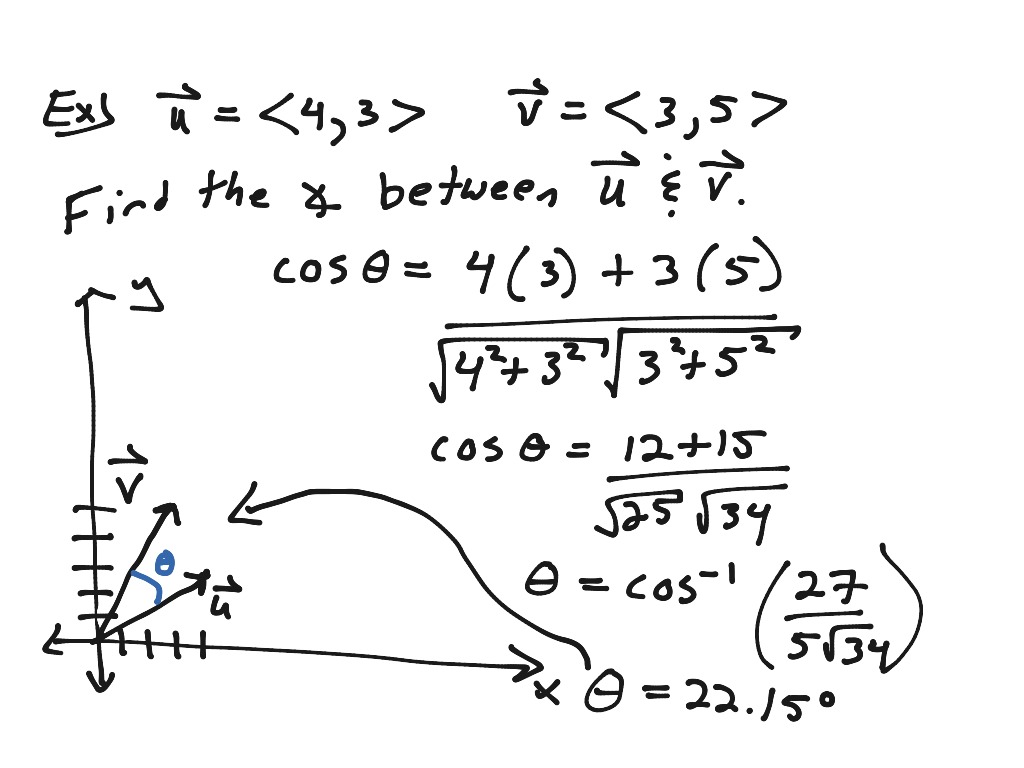 Ex) u⃗ = <4,3> v⃗ = <3,5>
Find the ∡ between u⃗ & v⃗.
cos θ = 4(3) + 3(5) / √(4² + 3²) √(3² + 5²)
y
cos θ = 12+15 / √25 √34
v⃗
θ
u⃗
θ = cos⁻¹ (27 / 5√34)
x
θ = 22.15°